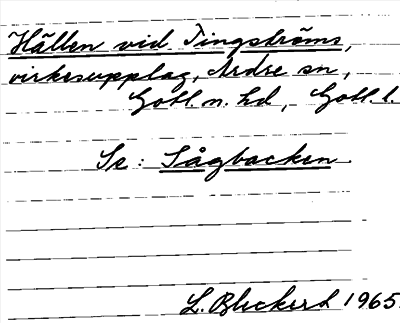 Hällen vid Tingströms,
virkesupplag, Ardre sn,
Gotl. n. hd, Gotl. l.
Se: Sågbacken.
L. Bleckert 1965.